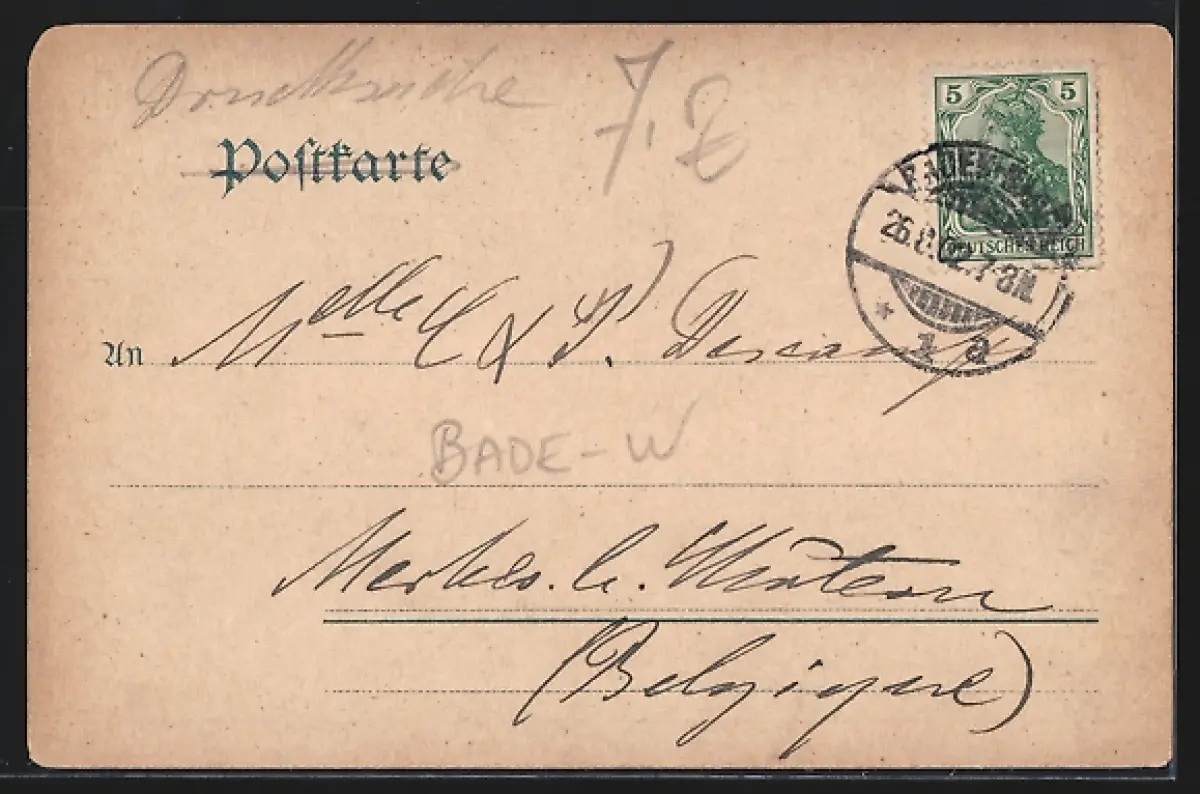 Drucksache
7.
Postkarte
5 5
DEUTSCHES REICH
BADEN-BADEN
26.8.02.7-8N.
* 1 a
An Melle C & P. Descamps
BADE-W
Merbes. le. Château
(Belgique)